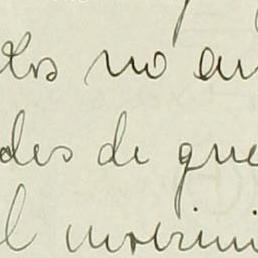 dos no au
des de que
l movimi